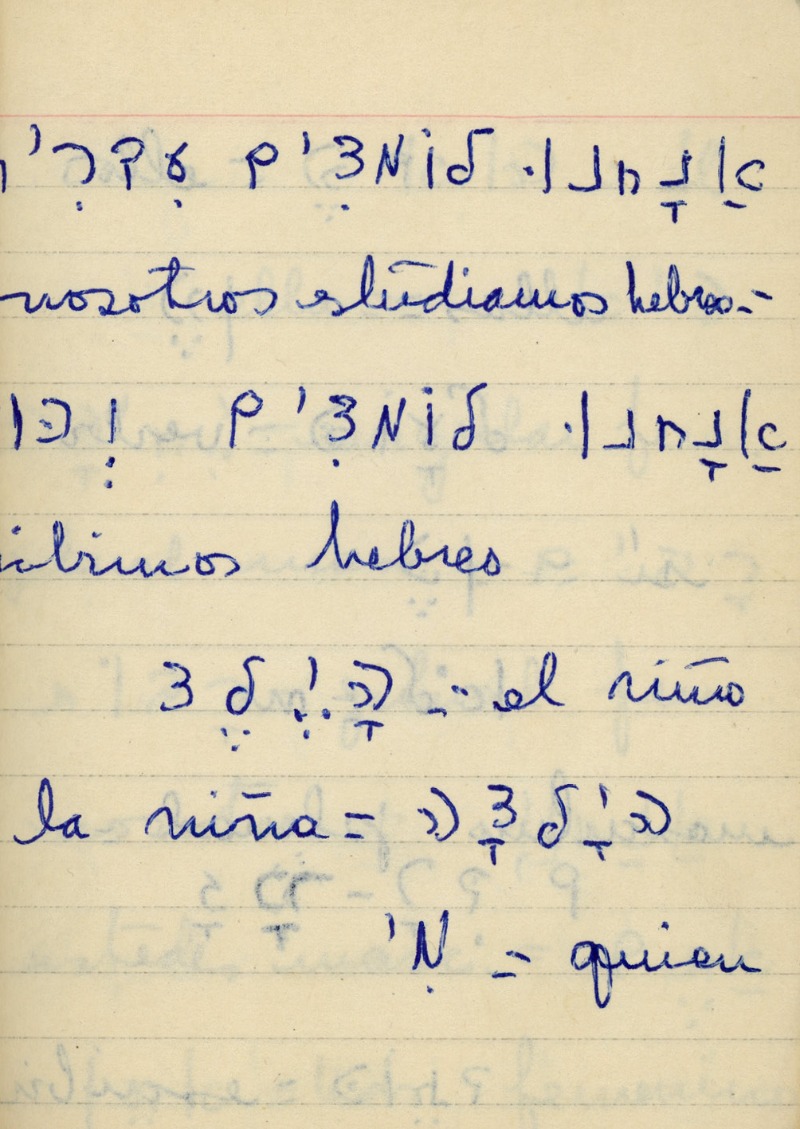 אַנָחנוּ לוֹמדִים עִברִי
nosotros estudiamos hebreo.-
אַנָחנוּ לוֹמדִים וְכּו
ibimos hebreo
הָיֶּלֶד = el niño
la niña = היָלדָה
מִי = quien